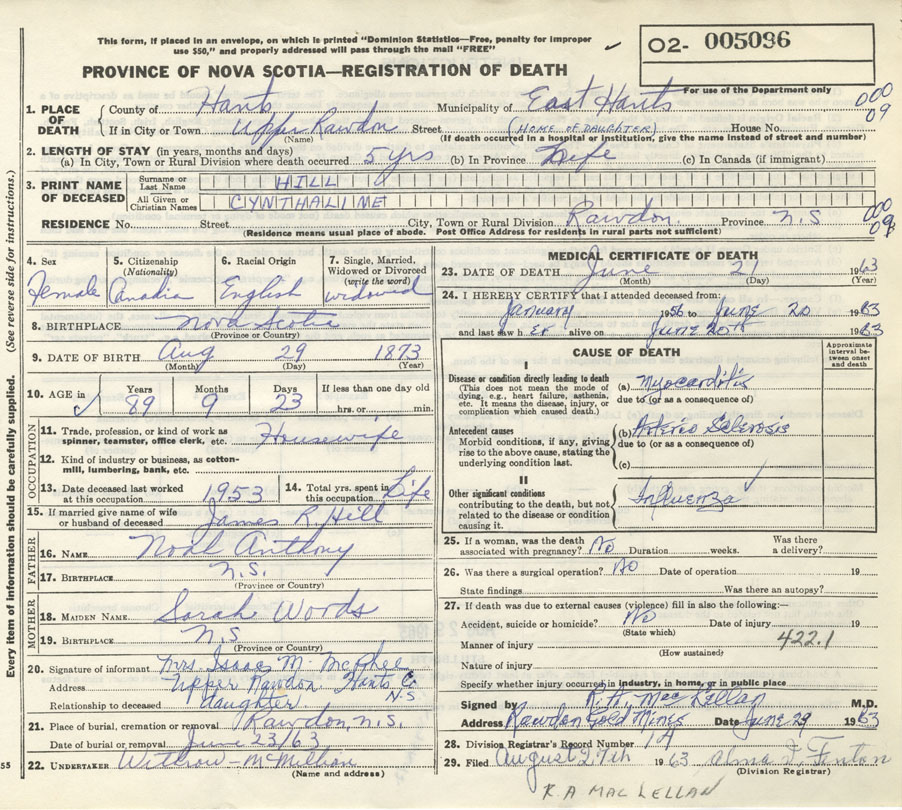 This form, if placed in an envelope, on which is printed "Dominion Statistics—Free, penalty for improper
use $50," and properly addressed will pass through the mail "FREE"
02- 005096
For use of the Department only
PROVINCE OF NOVA SCOTIA—REGISTRATION OF DEATH
1. PLACE OF DEATH { County of Hants Municipality of East Hants 000
09
If in City or Town Upper Rawdon Street (HOME OF DAUGHTER) House No.
(Name) (If death occurred in a hospital or institution, give the name instead of street and number)
2. LENGTH OF STAY (in years, months and days)
(a) In City, Town or Rural Division where death occurred 5 yrs (b) In Province Life (c) In Canada (if immigrant)
3. PRINT NAME OF DECEASED { Surname or Last Name HILL
All Given or Christian Names CYNTHALINE
RESIDENCE No. Street City, Town or Rural Division Rawdon Province N.S 000
09
(Residence means usual place of abode. Post Office Address for residents in rural parts not sufficient)
4. Sex Female
5. Citizenship (Nationality) Canadia
6. Racial Origin English
7. Single, Married, Widowed or Divorced (write the word) widowed
8. BIRTHPLACE Nova Scotia
(Province or Country)
9. DATE OF BIRTH Aug 29 1873
(Month) (Day) (Year)
10. AGE in Years 89 Months 9 Days 23 If less than one day old hrs. or min.
OCCUPATION
11. Trade, profession, or kind of work as spinner, teamster, office clerk, etc. Housewife
12. Kind of industry or business, as cotton-mill, lumbering, bank, etc.
13. Date deceased last worked at this occupation 1953
14. Total yrs. spent in this occupation Life
15. If married give name of wife or husband of deceased James R. Hill
FATHER
16. NAME Noah Anthony
17. BIRTHPLACE N.S.
(Province or Country)
MOTHER
18. MAIDEN NAME Sarah Woods
19. BIRTHPLACE N.S
(Province or Country)
20. Signature of informant Mrs. Isaac M. McPhee
Address Upper Rawdon Hants Co N.S
Relationship to deceased daughter
21. Place of burial, cremation or removal Rawdon N.S.
Date of burial or removal June 23/63
22. UNDERTAKER Withrow-McMillian
(Name and address)
MEDICAL CERTIFICATE OF DEATH
23. DATE OF DEATH June 21 1963
(Month) (Day) (Year)
24. I HEREBY CERTIFY that I attended deceased from:
January 1956 to June 20 1963
and last saw h er alive on June 20th 1963
CAUSE OF DEATH
Approximate interval between onset and death
I
Disease or condition directly leading to death (a) Myocarditis
(This does not mean the mode of dying, e.g., heart failure, asthenia, etc. It means the disease, injury, or complication which caused death.)
due to (or as a consequence of)
Antecedent causes (b) Arterio Sclerosis
Morbid conditions, if any, giving rise to the above cause, stating the underlying condition last.
due to (or as a consequence of)
(c)
II
Other significant conditions Influenza
contributing to the death, but not related to the disease or condition causing it.
25. If a woman, was the death associated with pregnancy? No Duration weeks. Was there a delivery?
26. Was there a surgical operation? No Date of operation 19
State findings Was there an autopsy?
27. If death was due to external causes (violence) fill in also the following:—
Accident, suicide or homicide? No Date of injury 19
(State which)
Manner of injury 422.1
(How sustained)
Nature of injury
Specify whether injury occurred in industry, in home, or in public place
Signed by R.A. MacLellan M.D.
Address Rawdon Gold Mines Date June 29 1963
28. Division Registrar's Record Number 14
29. Filed August 27th 1963 Alma F. Fenton
(Division Registrar)
R A MAC LELLAN
Every item of information should be carefully supplied. (See reverse side for instructions.)
55